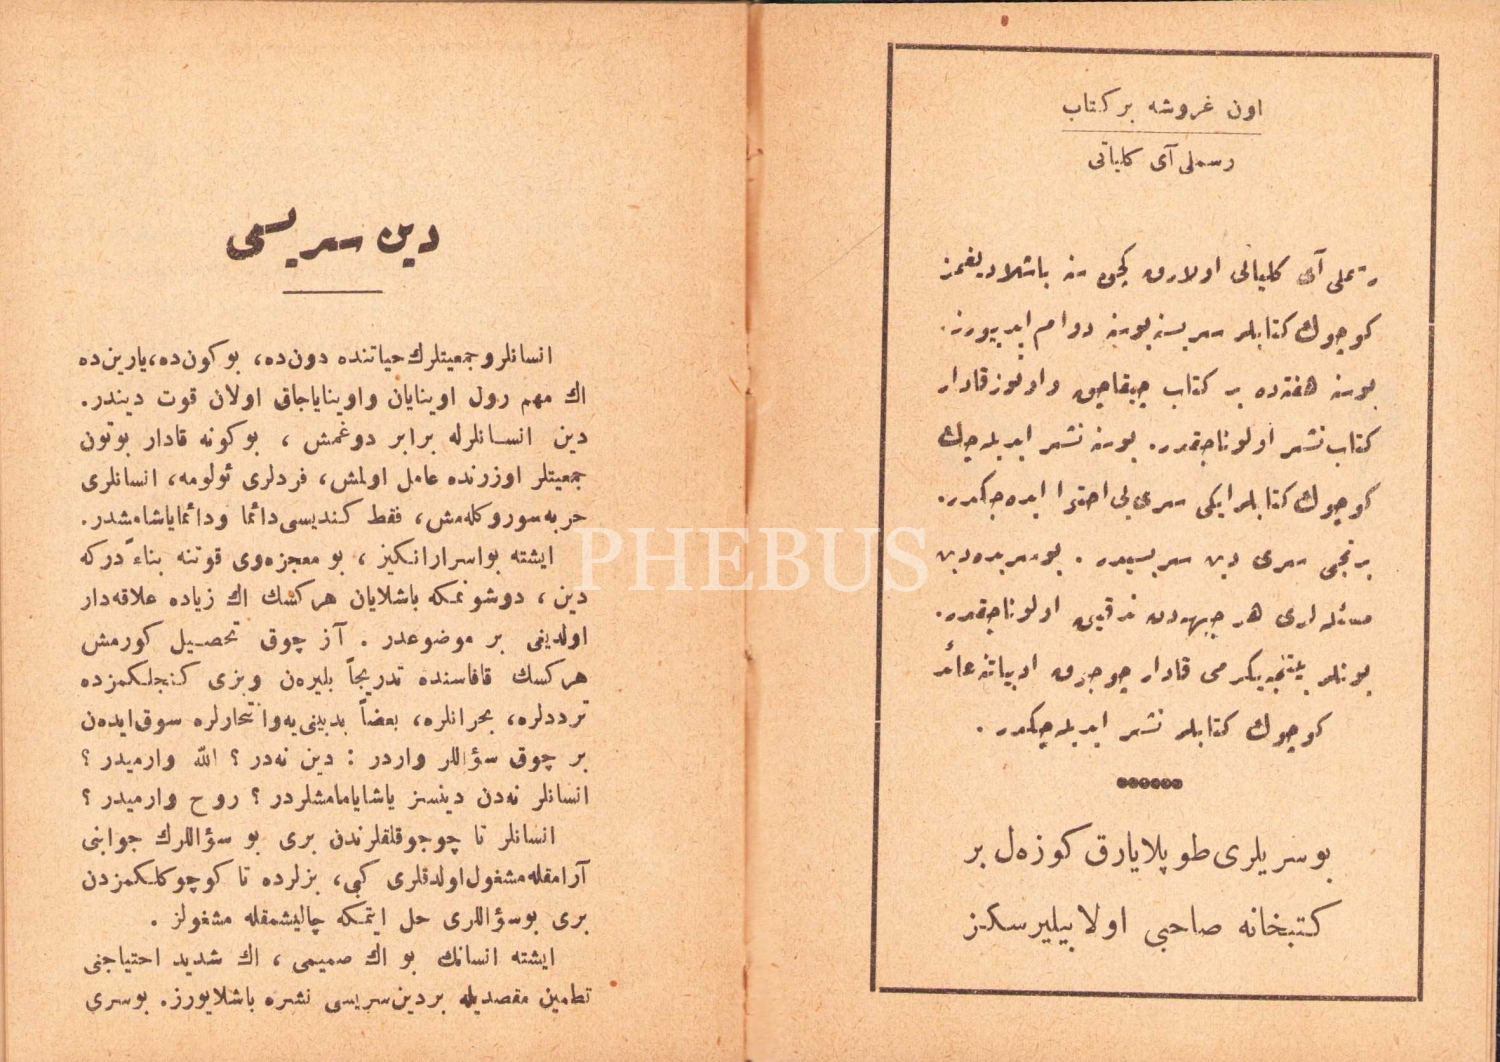 اون غروشه بر كتاب
رسملی آی كلیاتی
رسملی آی كلیاتی اولارق كچن سنه باشلادیغمز
كوچوك كتابلر سریسنه بوسنه دوام ایدییورز.
بوسنه هفته‌ده بر كتاب چیقاجق و اوتوز قادار
كتاب نشر اولوناجقدر. بوسنه نشر ایدیله‌جك
كوچوك كتابلر ایكی سری‌یی احتوا ایده‌جكدر.
برنجی سری دین سریسیدر. بوسریده دین
مسئله‌لری هر جبهه‌دن تدقیق اولوناجقدر.
بونلر یكرمی قادار چوجوق ادبیاتنه عائد
كوچوك كتابلر نشر ایدیله‌جكدر.
بو سریلری طوپلایارق كوزه‌ل بر
كتبخانه صاحبی اولابیلیرسكز
دین سریسی
انسانلر وجمعیتلرك حیاتنده دون‌ده، بوكون‌ده، یارین‌ده
اك مهم رول اوینایان واوینایاجاق اولان قوت دیندر.
دین انسانلرله برابر دوغمش ، بوكونه قادار بوتون
جمعیتلر اوزرنده عامل اولمش، فردلری ئولومه، انسانلری
حربه سوروكله‌مش، فقط كندیسی دائما ودائما یاشامشدر.
ایشته بو اسرارانكیز ، بو معجزه‌وی قوتنه بناءً دركه
دین ، دوشونمكه باشلایان هركسك اك زیاده علاقه‌دار
اولدیغی بر موضوعدر . آز چوق تحصیل كورمش
هركسك قافاسنده تدریجاً بلیره‌ن وبزی كنجلكمزده
ترددلره، بحرانلره، بعضاً بدبینی‌یه وانتحارلره سوق ایده‌ن
بر چوق سؤاللر واردر : دین نه‌در ؟ الله وارمیدر ؟
انسانلر نه‌دن دینسز یاشایامامشلردر ؟ روح وارمیدر ؟
انسانلر تا چوجوقلقلرندن بری بو سؤاللرك جوابنی
آرامقله مشغول اولدقلری كبی، بزلرده تا كوچوكلكمزدن
بری بوسؤاللری حل ایتمكه چالیشمقله مشغولز .
ایشته انسانك بو اك صمیمی ، اك شدید احتیاجنی
تطمین مقصدیله بر دین سریسی نشره باشلایورز. بوسری
PHEBUS